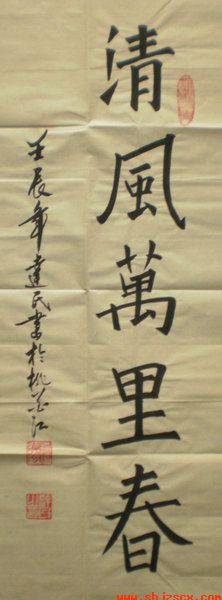 清風萬里春
壬辰年達民書於桃花江
www.shjzscx.com